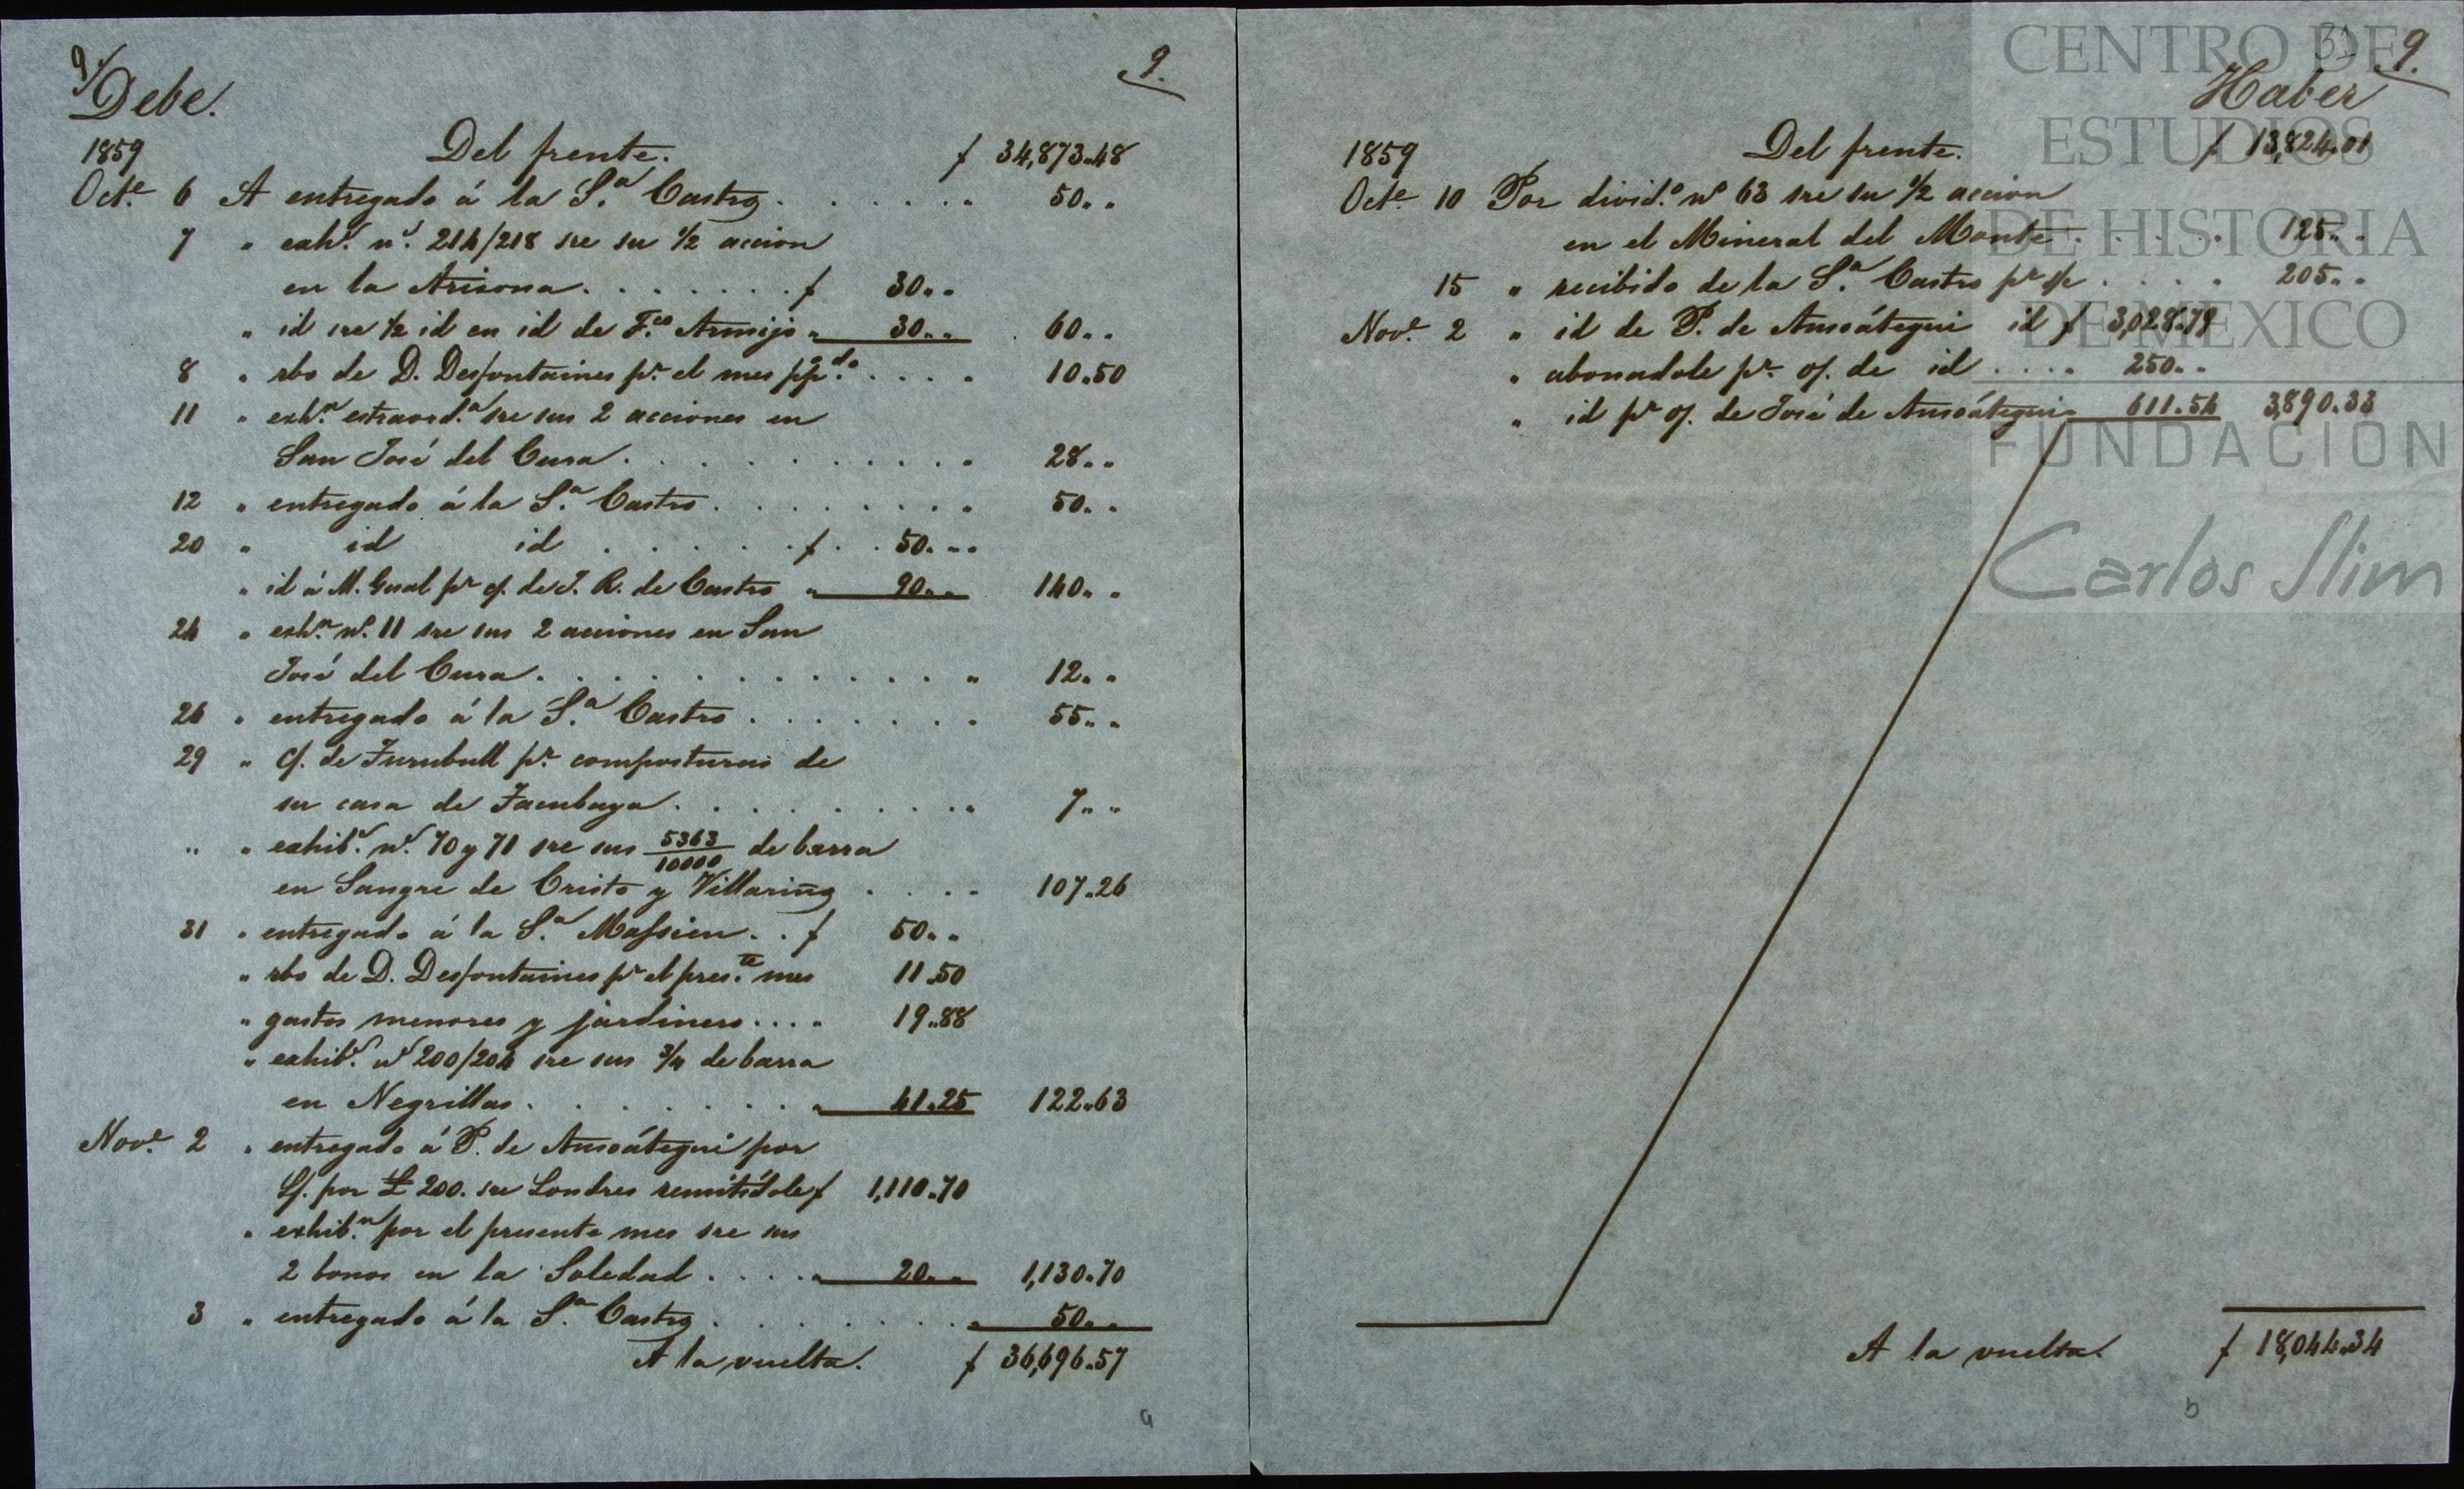 9/
Debe.
9.
1859 Del frente. $ 34,873"48
Oct.e 6 A entregado á la S.a Castro . . . . . . 50" "
7 " exh.s n.s 214/218 sre su 1/2 accion
en la Arizona . . . . . . . $ 30" "
" id sre 1/2 id en id de F.co Armijo " 30" " 60" "
8 " rbo de D. Desfontaines p.r el mes pp.do . . . . 10.50
11 " exh.n estraord.a sre sus 2 acciones en
San José del Cura . . . . . . . . . . 28" "
12 " entregado á la S.a Castro . . . . . . . . 50" "
20 " id id . . . . . . $ . . 50" "
" id á M. Gual p.r c/. de J. R. de Castro " 90" " 140" "
24 " exh.n n.o 11 sre sus 2 acciones en San
José del Cura . . . . . . . . . . . . " 12" "
26 " entregado á la S.a Castro . . . . . . . 55" "
29 " C/. de Turnbull p.r composturas de
su casa de Tacubaya . . . . . . . . . " 7" "
" " exhib.s n.s 70 y 71 sre sus 5363/10000 de barra
en Sangre de Cristo y Villariño . . . . 107"26
31 " entregado á la S.a Massieu . . $ 50" "
" rbo de D. Desfontaines p.r el pres.te mes 11.50
" gastos menores y jardinero . . . " 19"88
" exhib.s n.s 200/204 sre sus 3/4 de barra
en Negrillas . . . . . . . . " 41"25 122"63
Nov.e 2 " entregado á P. de Ansoátegui por
L/. por £ 200. sre Londres remitídole $ 1,110"70
" exhib.n por el presente mes sre sus
2 bonos en la Soledad . . . . " 20" " 1,130"70
3 " entregado á la S.a Castro . . . . . . . . " 50" "
A la vuelta. $ 36,696"57
a
31
9.
Haber
1859 Del frente. $ 13,824"01
Oct.e 10 Por divid.o n.o 63 sre su 1/2 accion
en el Mineral del Monte . . . . . 125" "
15 " recibido de la S.a Castro p.r s/c . . . . 205" "
Nov.e 2 " id de P. de Ansoátegui id $ 3,028"79
" abonadole p.r c/. de id . . . . 250" "
" id p.r c/. de José de Ansoátegui " 611"54 3,890"33
A la vuelta. $ 18,044"34
b
CENTRO DE
ESTUDIOS
DE HISTORIA
DE MEXICO
FUNDACION
Carlos Slim